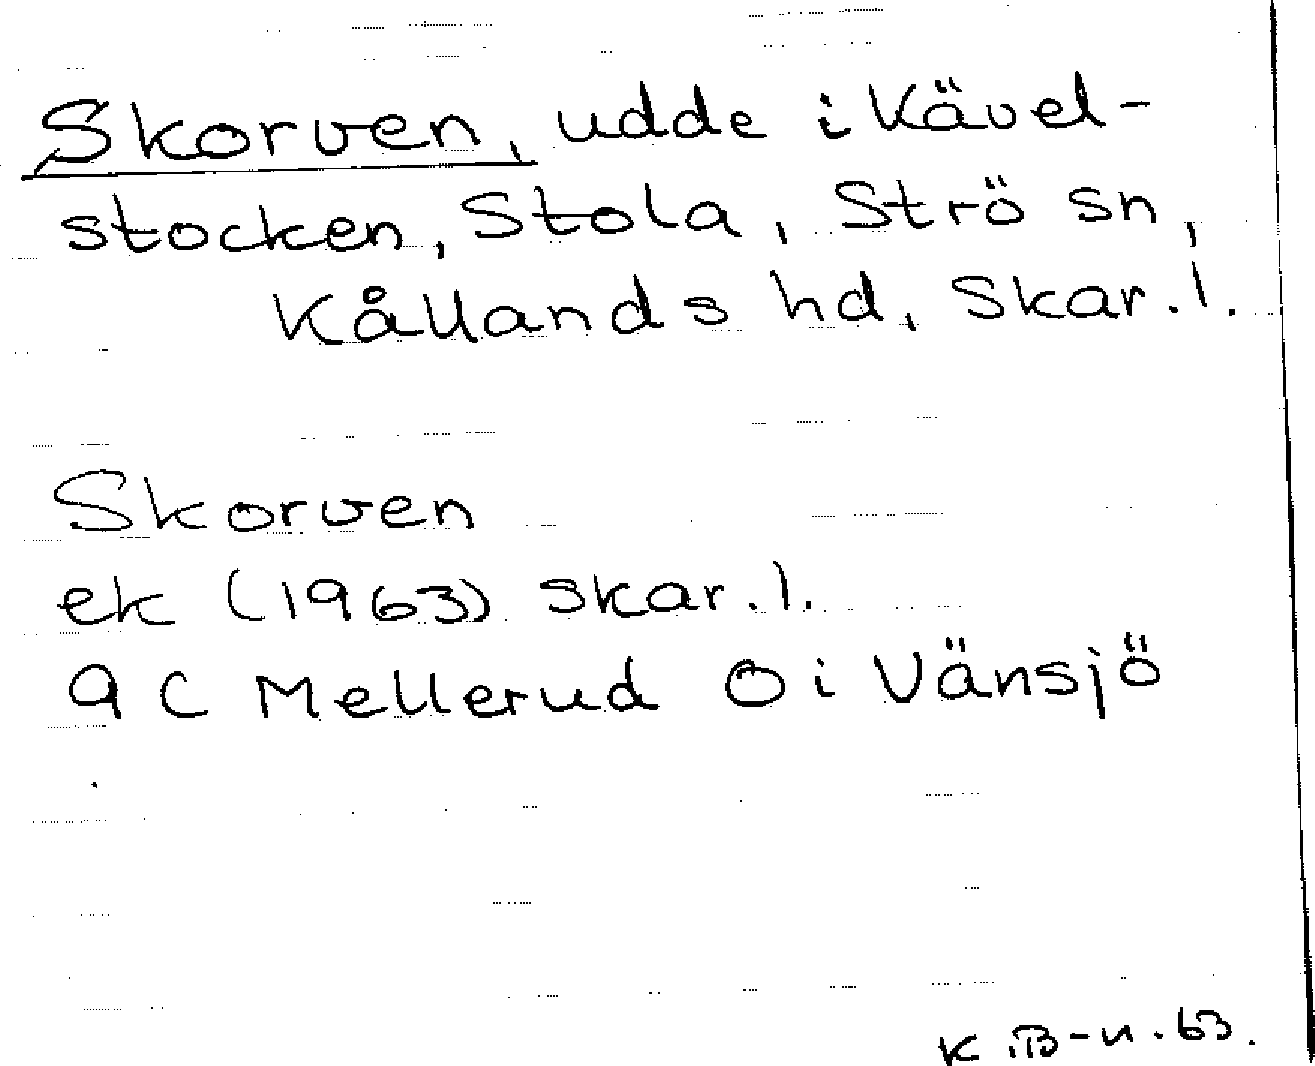 Skorven, udde i Kävel-
stocken, Stola, Strö sn,
Kållands hd, Skar. l.
Skorven
ek (1963) skar. l.
9 C Mellerud O i Vänsjö
K.B-n.63.